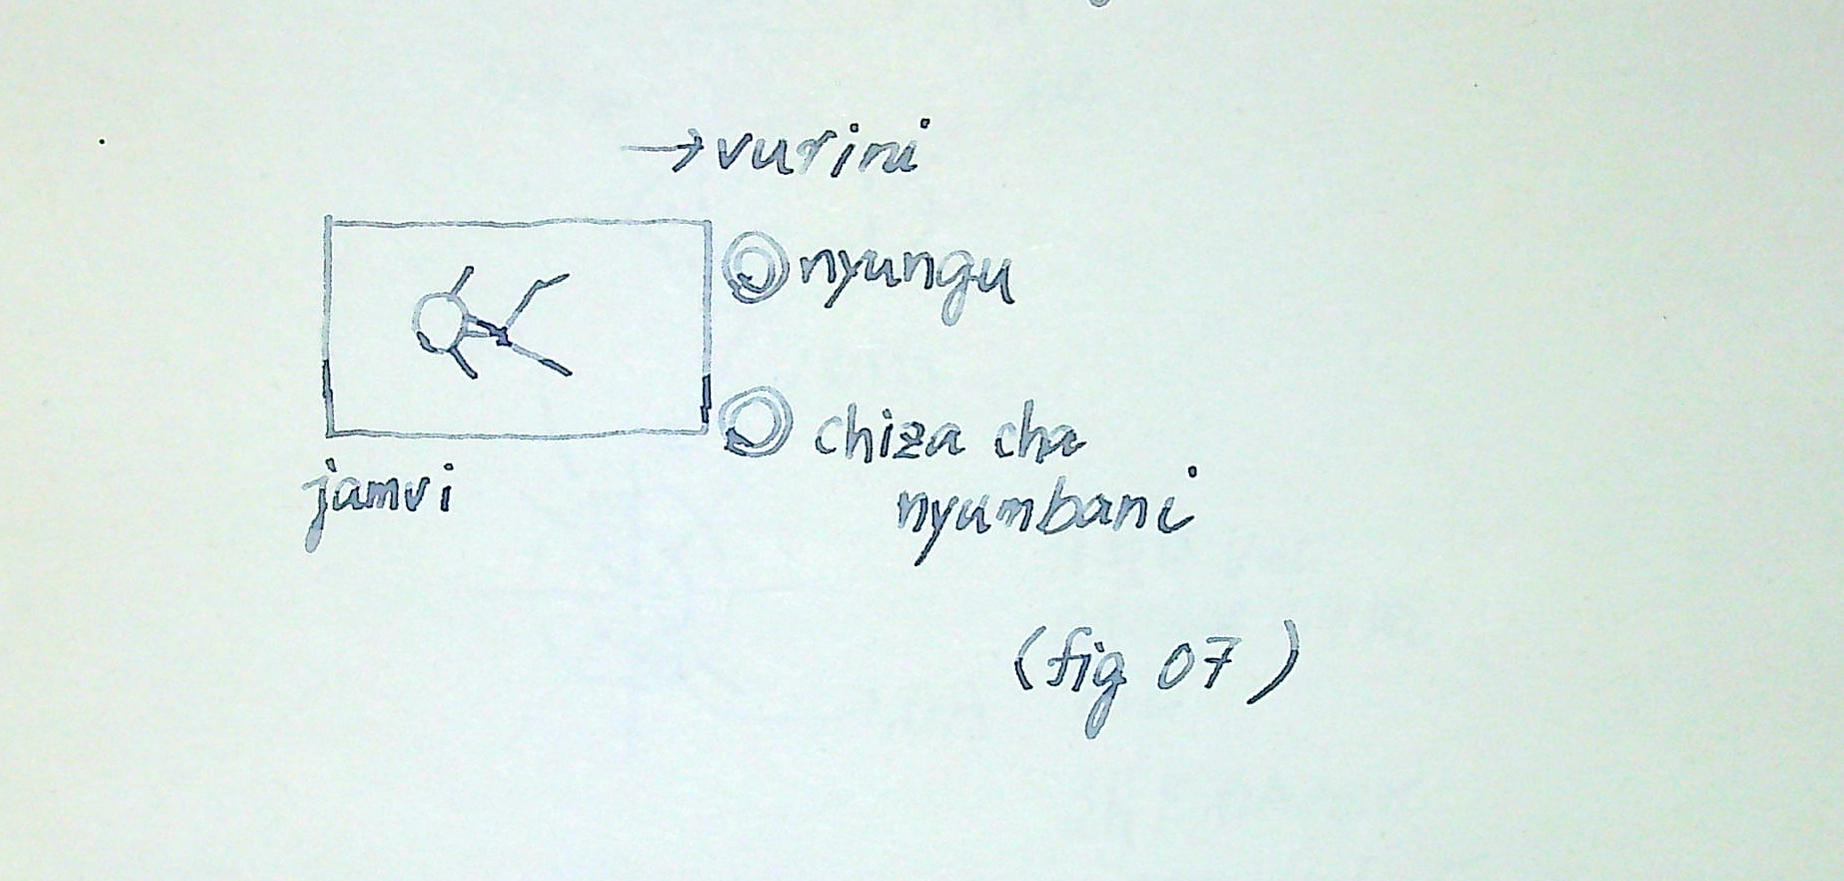 →vurini
nyungu
chiza cha
nyumbani
jamvi
(fig 07)